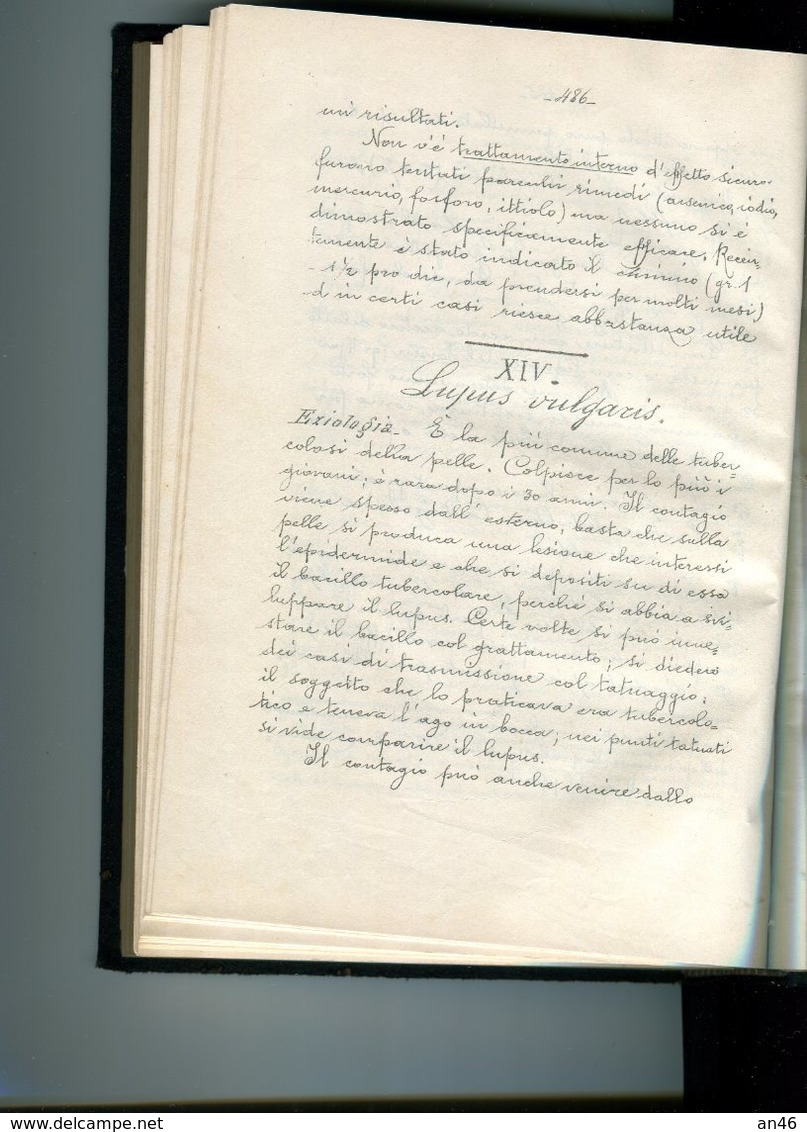 -486-
mi risultati.
Non v'è trattamento interno d'effetto sicuro.
furono tentati parecchi rimedi (arsenico, iodio,
mercurio, fosforo, ittiolo) ma nessuno si è
dimostrato specificamente efficace. Recen=
temente è stato indicato il chinino (gr. 1
- 1 ½ pro die, da prendersi per molti mesi)
d in certi casi riesce abbastanza utile
XIV.
Lupus vulgaris.
Eziologia - È la più comune delle tuber=
colosi della pelle. Colpisce per lo più i
giovani; è rara dopo i 30 anni. Il contagio
viene spesso dall' esterno, basta che sulla
pelle si produca una lesione che interessi
l'epidermide e che si depositi su di essa
il bacillo tubercolare, perché si abbia a svi=
luppare il lupus. Certe volte si può inne=
stare il bacillo col grattamento; si diedero
dei casi di trasmissione col tatuaggio;
il soggetto che lo praticava era tubercolo=
tico e teneva l'ago in bocca; nei punti tatuati
si vide comparire il lupus.
Il contagio può anche venire dallo
an46